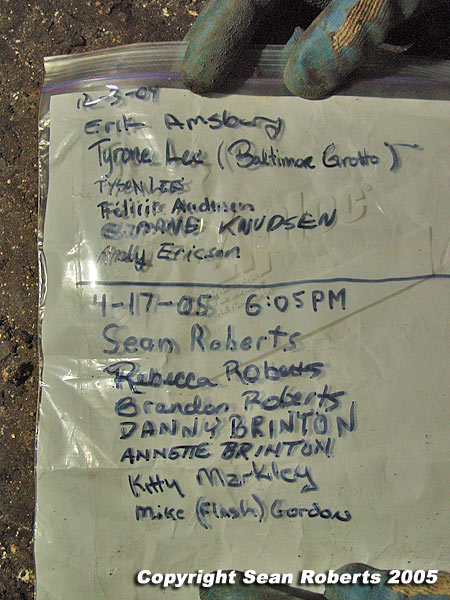 12-3-04
Erik Amsbury
Tyrone Lee (Baltimore Grotto)
TYSEN LEE
Felicite Andersen
BJARNE KNUDSEN
Andy Ericson
4-17-05 6:05PM
Sean Roberts
Rebecca Roberts
Brandon Roberts
DANNY BRINTON
ANNETTE BRINTON
Kitty Markley
Mike (Flash) Gordon
Copyright Sean Roberts 2005